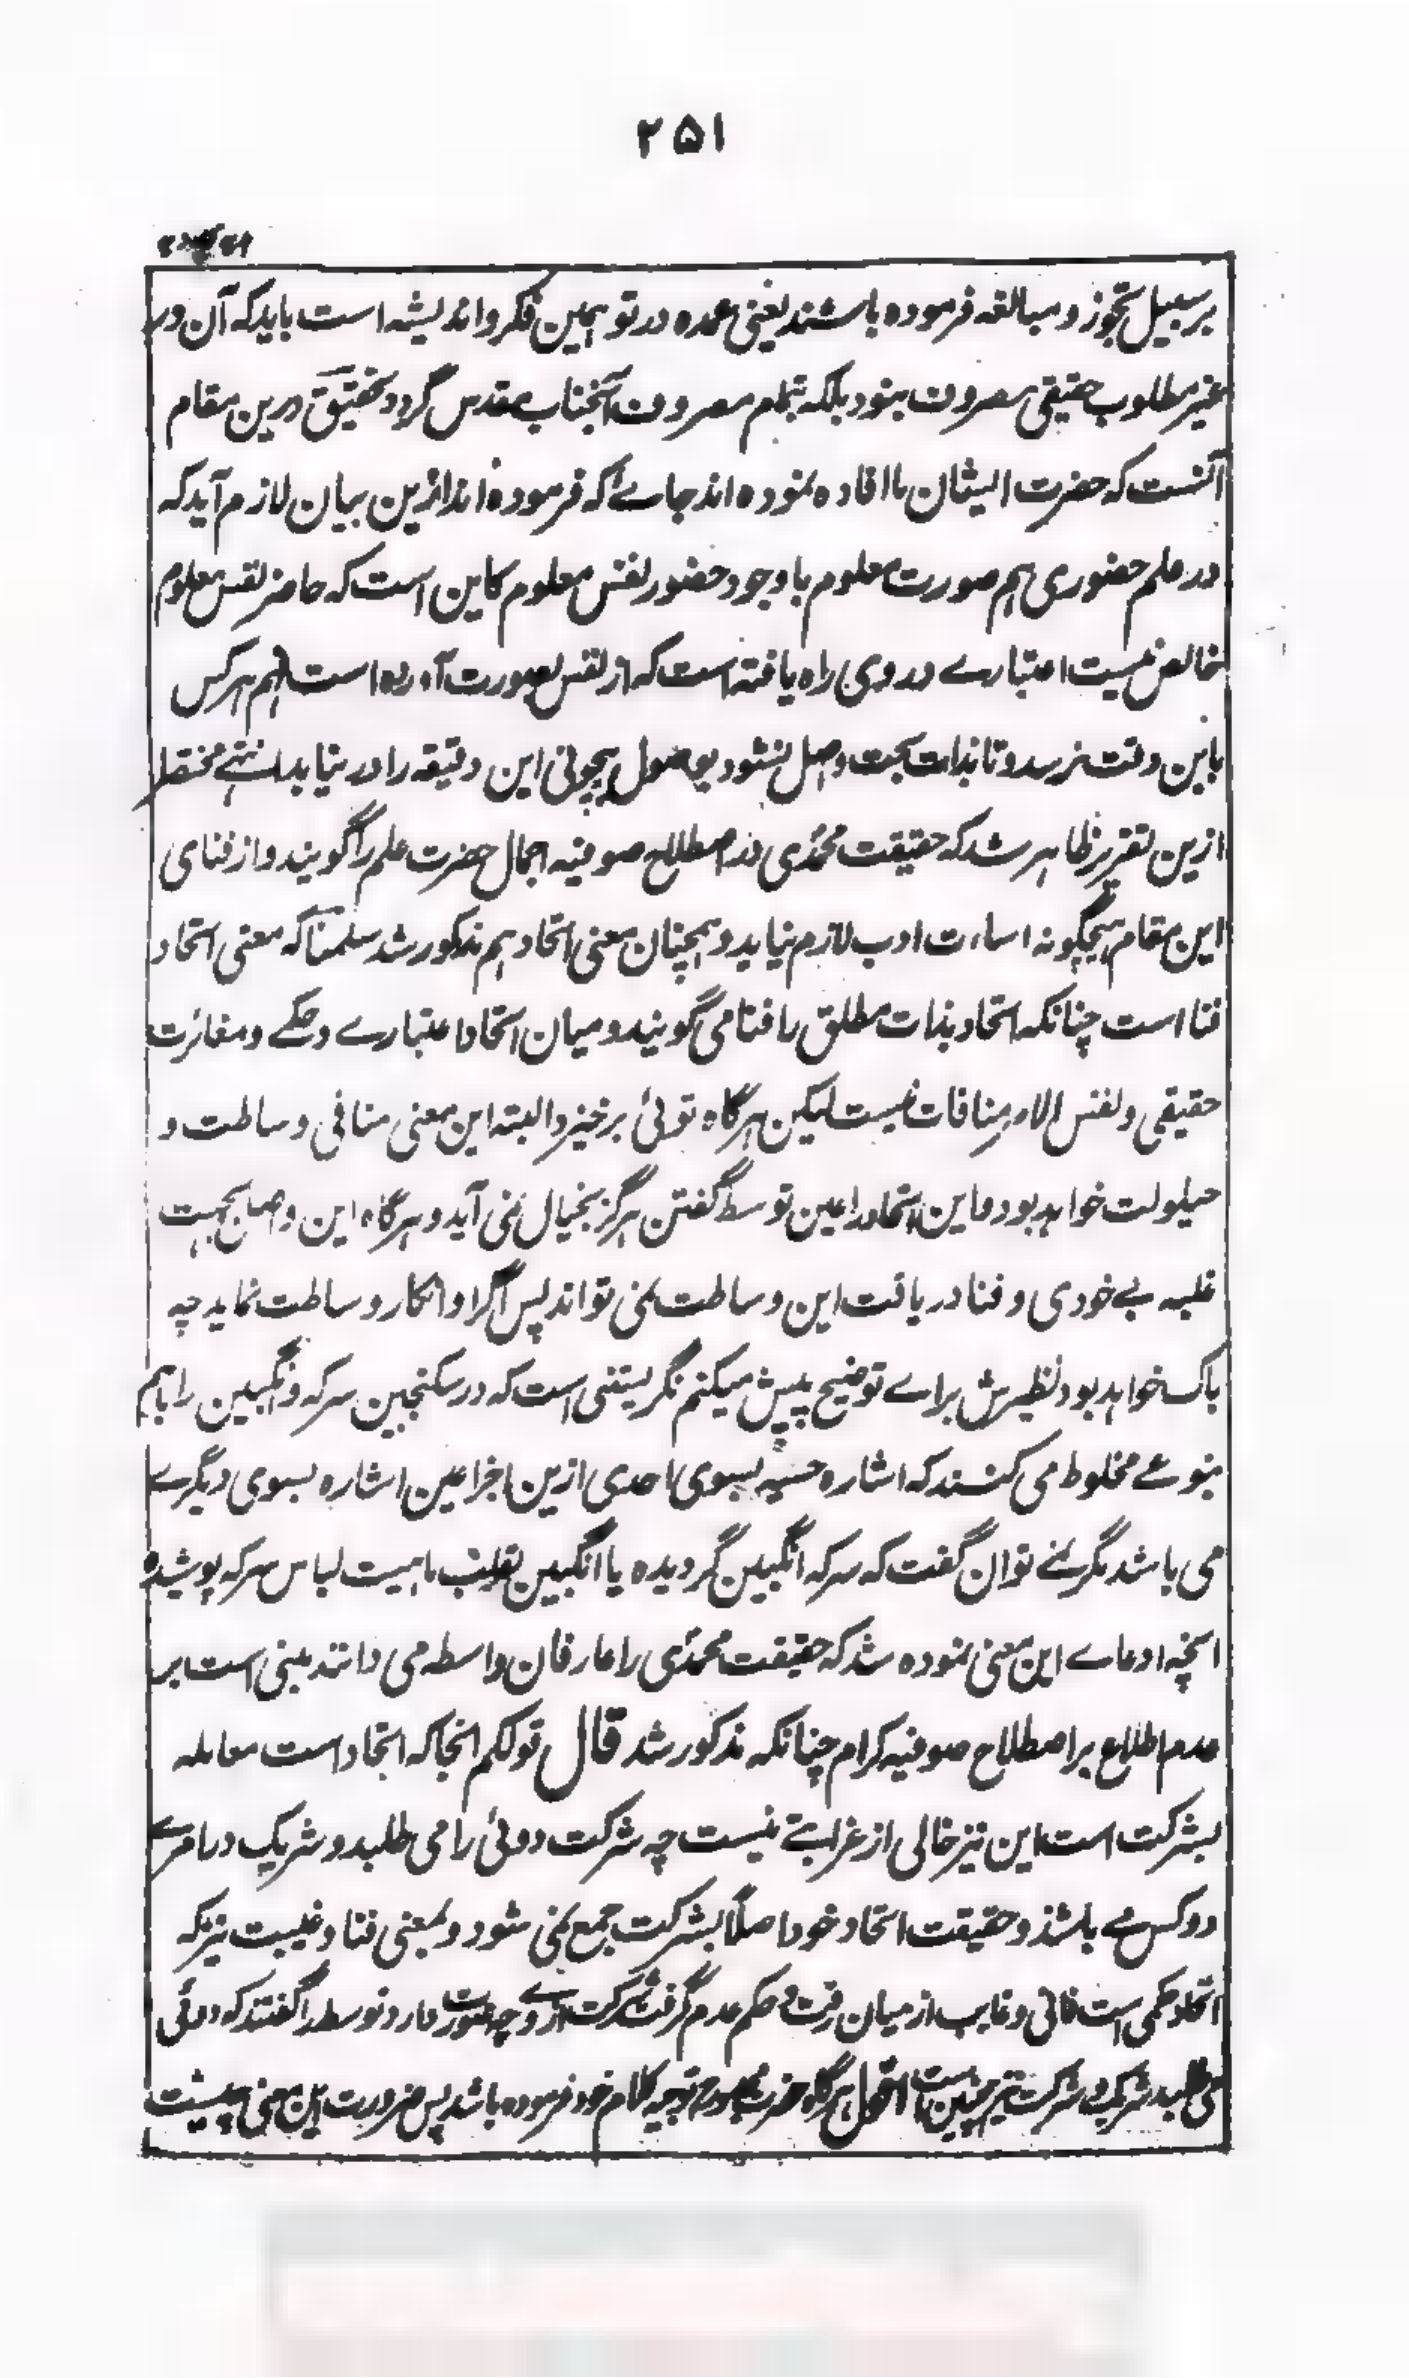 ۲۵۱
بر سبیل تجوز و مبالغه فرموده باشند یعنی عمده در تو همین فکر و اندیشه است باید که آن در
غیر مطلوب حقیقی مصروف بنود بلکه بتمام مصروف آنجناب مقدس گردد تحقیق درین مقام
آنست که حضرت ایشان ما افاده نموده اند جاے که فرموده اند ازین بیان لازم آید که
در علم حضوری هم صورت معلوم با وجود حضور نفس معلوم کاین است که حاضر نفس معلوم
خالص نیست اعتبارے در وی راه یافته است که از نفس بصورت آورده است فهم هر کس
باین دقت نرسد و تا بذات بحت واصل نشود بوصول بیچونی این دقیقه را در نیابد انتهے مختصراً
ازین تقریر ظاهر شد که حقیقت محمدی در اصطلاح صوفیه اجمال حضرت علم را گویند و از فنای
این مقام هیچگونه اساءت ادب لازم نیاید و همچنان معنی اتحاد هم مذکور شد سلمنا که معنی اتحاد
فنا است چنانکه اتحاد بذات مطلق را فنا می گویند و میان اتحاد اعتبارے و حکمے و مغائرت
حقیقی و نفس الامر منافات نیست لیکن هرگاه توئی برخیزد البته این معنی منافی وساطت و
حیلولت خواهد بود و این اتحاد را عین توسط گفتن هرگز بخیال نمی آید و هرگاه این واصل بجهت
غلبه بے خودی و فنا دریافت این وساطت نمی تواند پس اگر او انکار وساطت نماید چه
باک خواهد بود نظیرش براے توضیح پیش میکنم نگریستنی است که در سکنجبین سرکه و انگبین را باهم
بنوعے مخلوط می کنند که اشاره حسیه بسوی احدی ازین اجزا عین اشاره بسوی دیگرے
می باشد مگر نمے توان گفت که سرکه انگبین گردیده یا انگبین بقلب ماهیت لباس سرکه پوشیده
انچه ادعاے این معنی نموده شد که حقیقت محمدی را عارفان واسطه می دانند مبنی است بر
عدم اطلاع بر اصطلاح صوفیه کرام چنانکه مذکور شد قال قولکم انجا که اتحاد است معامله
بشرکت است این نیز خالی از غرابتے نیست چه شرکت دوئی را می طلبد و شریک در امرے
دو کس مے باشند و حقیقت اتحاد خود اصلاً بشرکت جمع نمی شود و بمعنی فنا و غیبت نیز که
اتحاد حکمی است فانی و غایب از میان رفت و حکم عدم گرفت شرکت ازوے چه صورت دارد توسط را گفتند که دوئی
می طلبد شریک و شرکت نیز چنین است اقول هرگاه حضرت توجیه کلام خود فرموده باشد پس ضرورت این معنی چیست